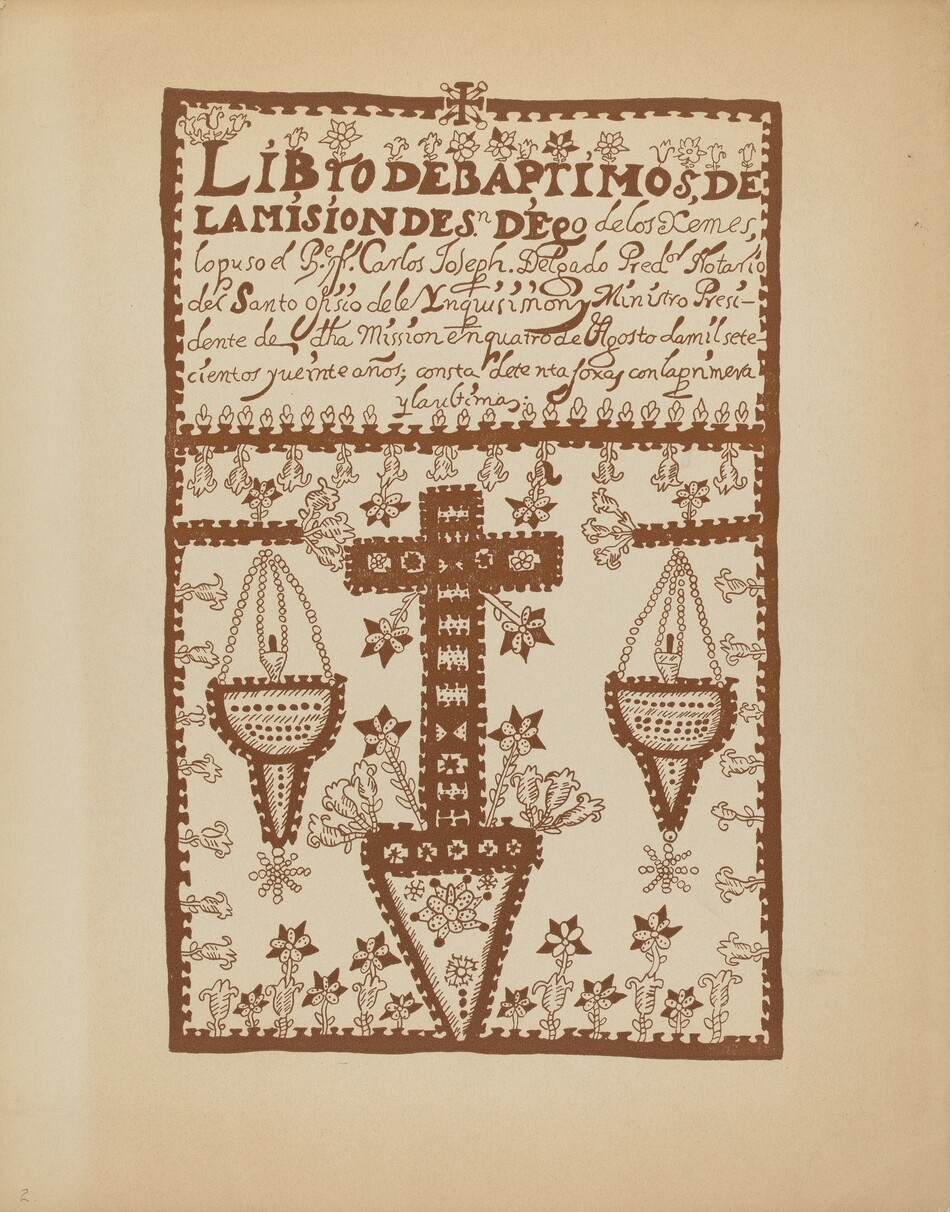 LiBro DE BAPTiMOS, DE
LA MiSiON DE Sn. DiEgo de los Xemes,
lo puso el P.e fr. Carlos Joseph. Delgado Pred.or Notario
del Santo ofisio dele Ynquisision, y Ministro Presi-
dente de dha Mission en quatro de Agosto da mil sete-
cientos y ueinte años; consta de te nta foxas con la primera
y la ultima;
2